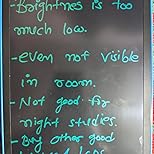 - Brightness is too
much low.
- even not visible
in room.
- Not good for
night studies.
- Buy other good